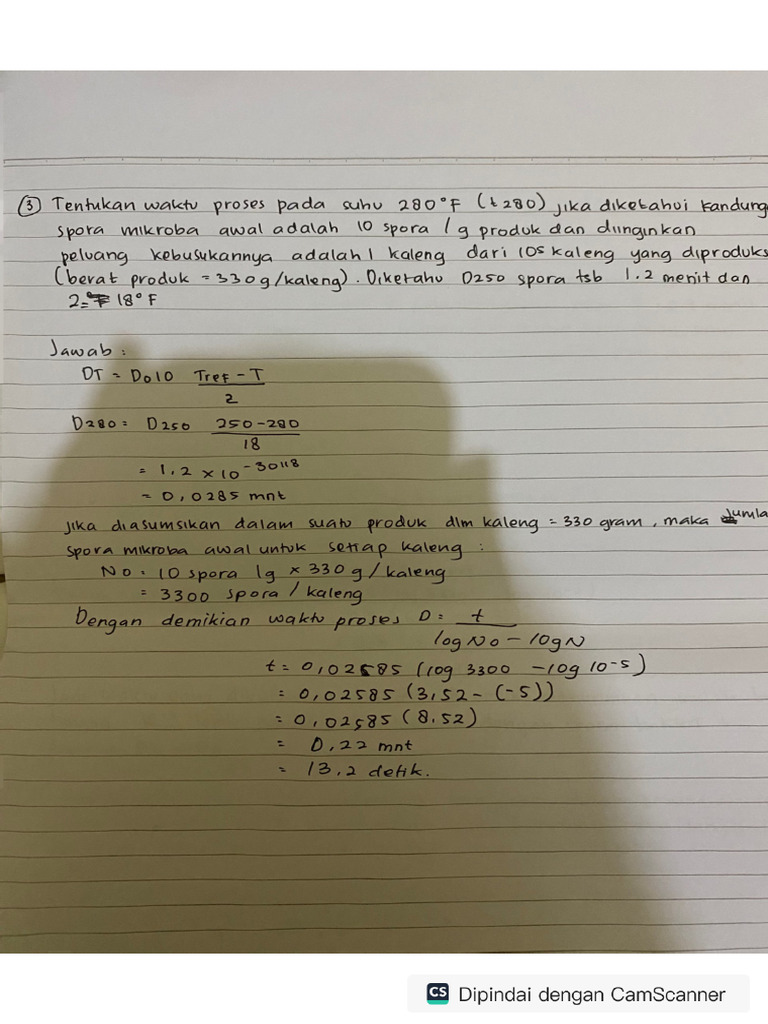 ③ Tentukan waktu proses pada suhu 280°F (t280) jika diketahui Kandung
spora mikroba awal adalah 10 spora / g produk dan diinginkan
peluang kebusukannya adalah 1 kaleng dari 105 kaleng yang diproduks
(berat produk = 330 g/kaleng). Diketahu D250 spora tsb 1.2 menit dan
2= 18°F
Jawab :
DT = Do10 Tref - T
2
D280 = D250 250-280
18
= 1,2 × 10 -30118
= 0,0285 mnt
jika diasumsikan dalam suatu produk dlm kaleng = 330 gram, maka Jumla
spora mikroba awal untuk setiap kaleng :
No = 10 spora 1g × 330 g/kaleng
= 3300 spora / kaleng
Dengan demikian waktu proses D = t
log No - log N
t = 0,02585 (log 3300 - log 10-5)
= 0,02585 (3,52 - (-5))
= 0,02585 (8.52)
= 0,22 mnt
= 13,2 detik.
CS Dipindai dengan CamScanner